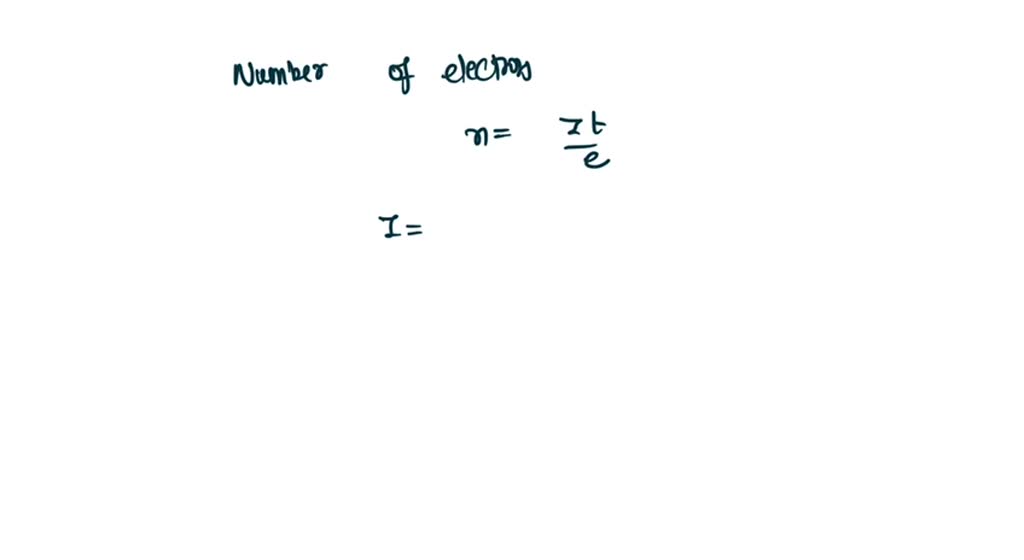 Number of electrons
n = It / e
I =